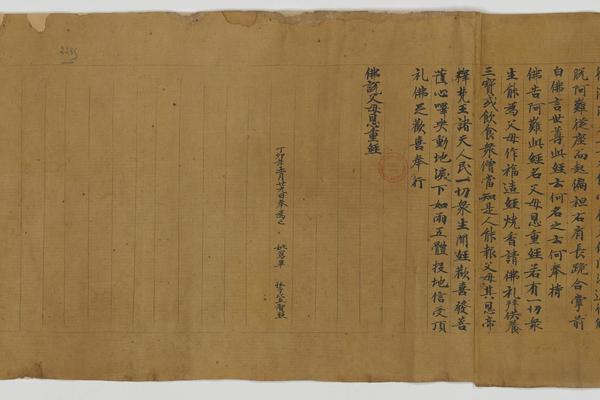 脱阿難從座而起偏袒右肩長跪合掌前
白佛言世尊此經云何名之云何奉持
佛告阿難此經名父母恩重經若有一切衆
生能為父母作福造經燒香請佛礼拜供養
三寶或飲食衆僧當知是人能報父母其恩帝
釋梵王諸天人民一切衆生聞經歡喜發菩
薩心嘷哭動地淚下如雨五體投地信受頂
礼佛足歡喜奉行
佛説父母恩重經
丁卯年十一月廿九日
2285